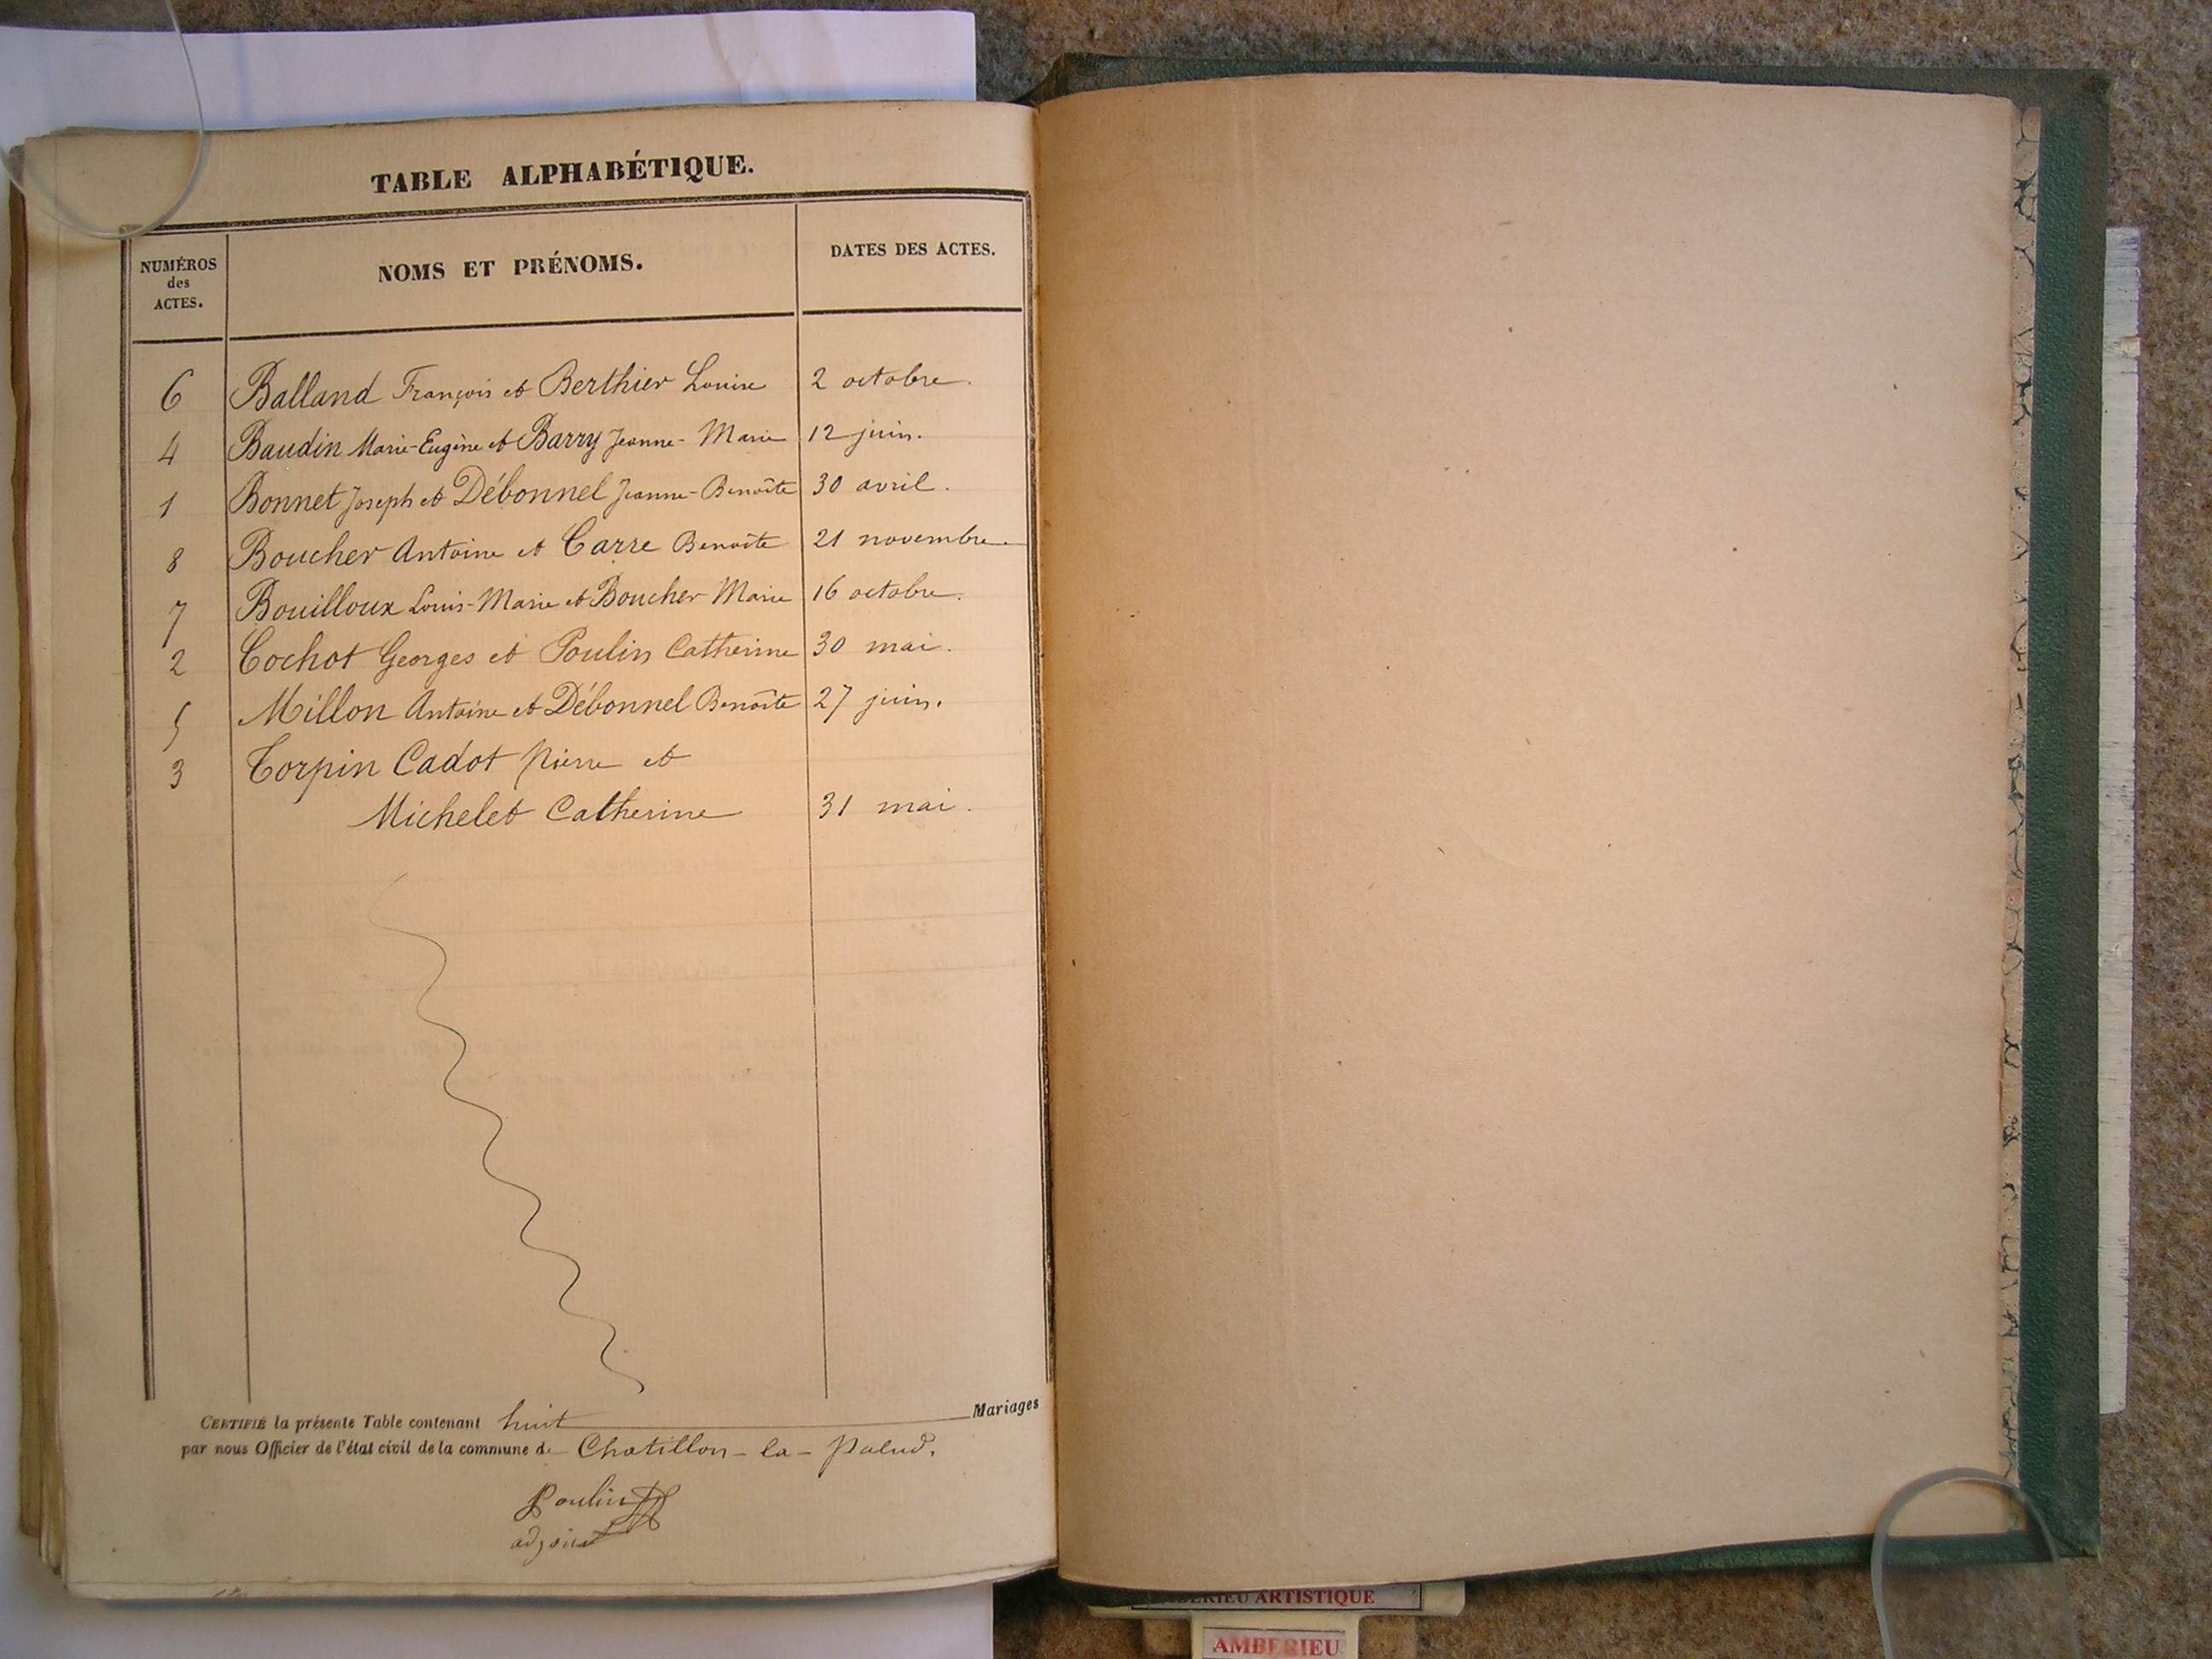 TABLE ALPHABÉTIQUE.
NUMÉROS des ACTES. NOMS ET PRÉNOMS. DATES DES ACTES.
6 Balland François et Berthier Louise 2 octobre.
4 Baudin Marie-Eugène et Barry Jeanne-Marie 12 juin.
1 Bonnet Joseph et Débonnel Jeanne-Benoîte 30 avril.
8 Boucher Antoine et Carre Benoîte 21 novembre.
7 Bouilloux Louis-Marie et Boucher Marie 16 octobre.
2 Cochot Georges et Poulin Catherine 30 mai.
5 Millon Antoine et Débonnel Benoîte 27 juin.
3 Torpin Cadot Pierre et
Michelet Catherine 31 mai.
CERTIFIÉ la présente Table contenant huit Mariages
par nous Officier de l'état civil de la commune de Chatillon-la-Palud.
Poulin
adjoint
ARTISTIQUE
AMBERIEU